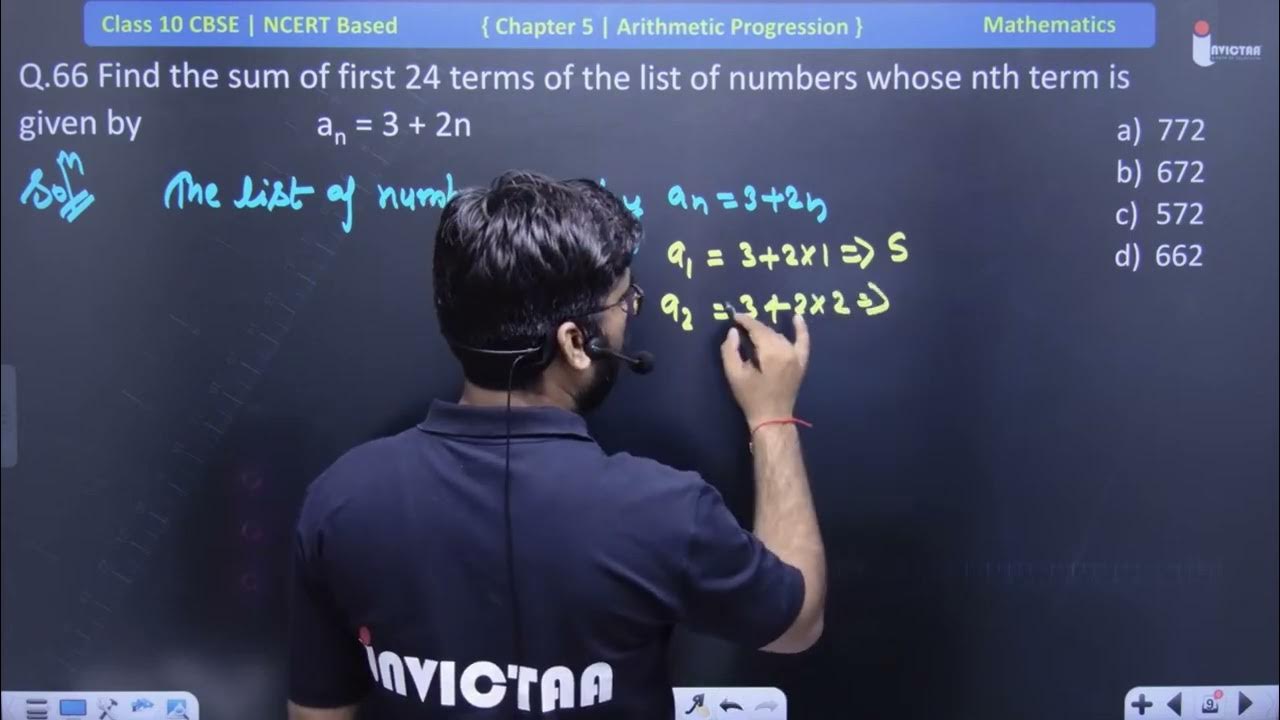 Class 10 CBSE | NCERT Based { Chapter 5 | Arithmetic Progression } Mathematics
iNVICTAA
Q.66 Find the sum of first 24 terms of the list of numbers whose nth term is
given by aₙ = 3 + 2n
a) 772
b) 672
c) 572
d) 662
Solⁿ The list of num by aₙ = 3+2n
a₁ = 3+2×1 => 5
a₂ = 3+2×2 =>
iNVICTAA